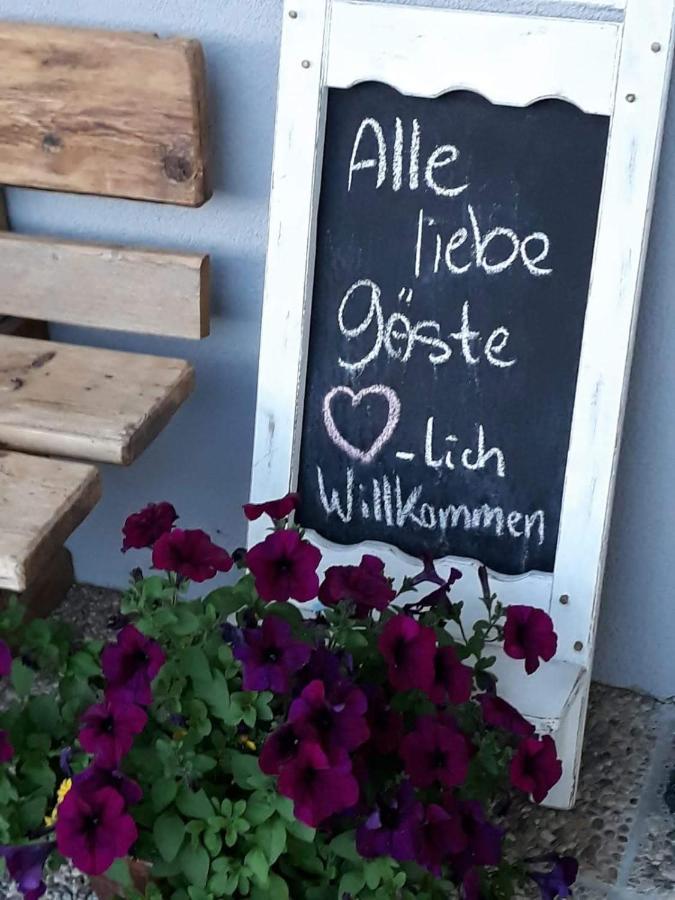 Alle
liebe
gäste
♡-lich
Willkommen